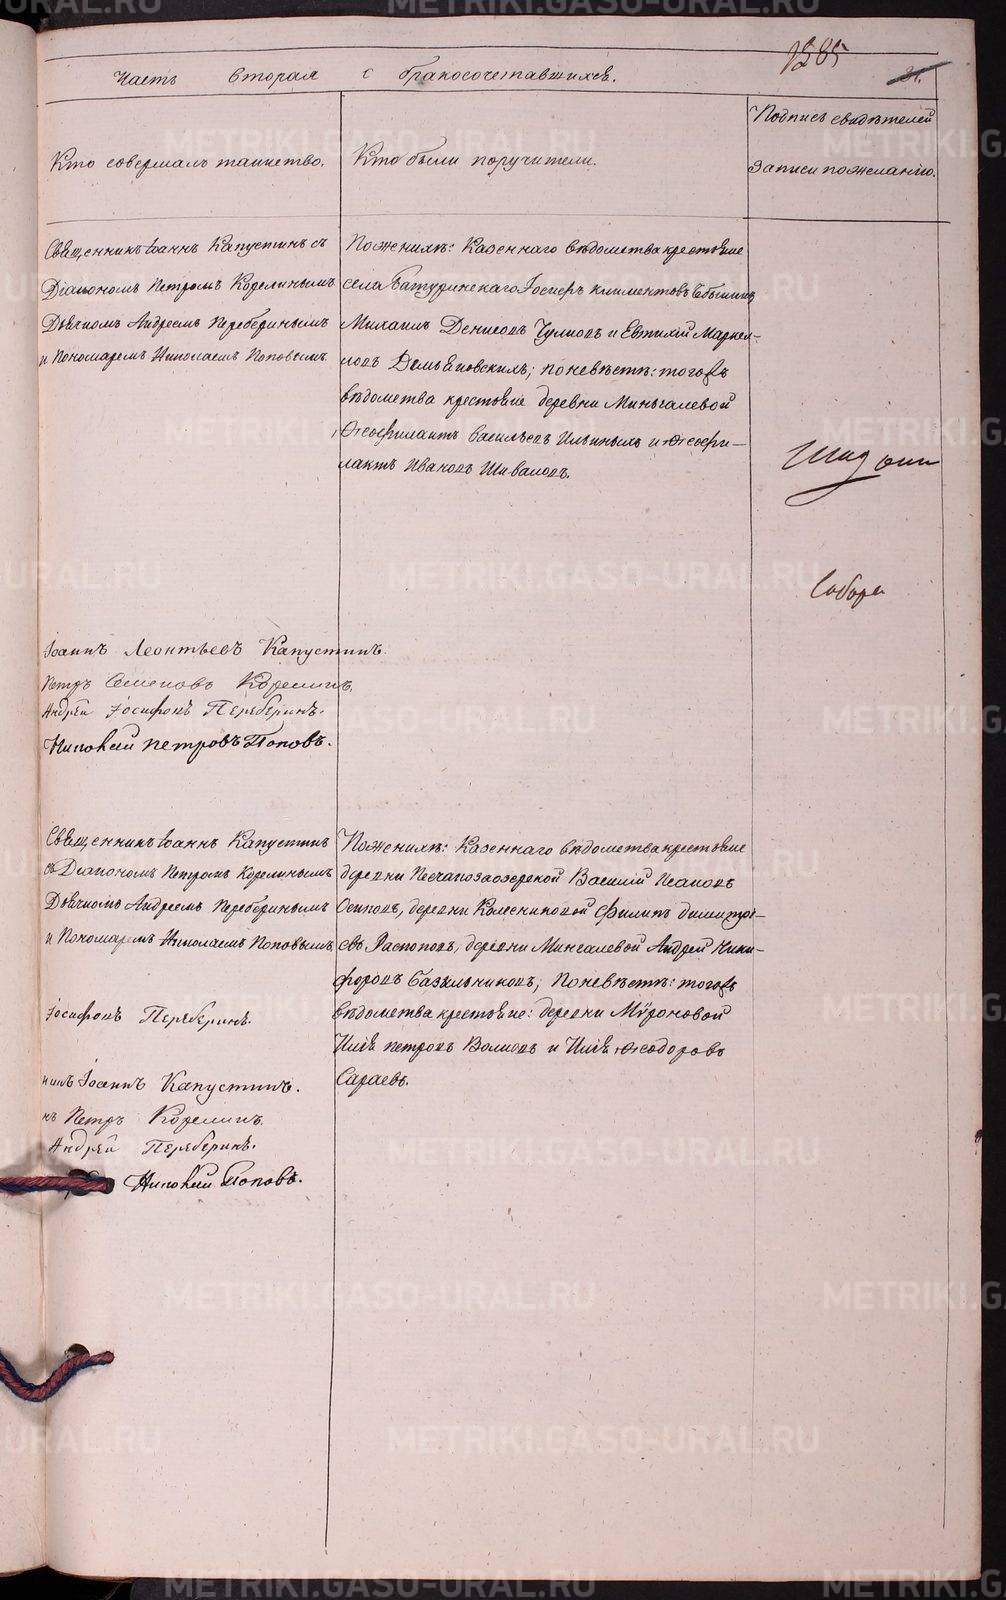 1285
Часть вторая о бракосочетавшихся.
21.
Кто совершалъ таинство.
Кто были поручители.
Подпись свидѣтелей
записи по желанію.
Священникъ Іоаннъ Капустинъ съ
Діакономъ Петромъ Корелинымъ
Дьячкомъ Андреемъ Переберинымъ
и Пономаремъ Николаемъ Поповымъ.
По женихѣ: Казеннаго вѣдомства крестьяне
села Батуринскаго Іосифъ Климентовъ
Михаилъ Денисовъ Чулковъ и Евтихій Маркел-
ловъ Демьяновскихъ; по невѣстѣ: того жъ
вѣдомства крестьяне деревни Миньгалевой
Ѳеофилактъ Васильевъ Ильиныхъ и Ѳеофи-
лактъ Ивановъ Шиваловъ.
Іоаннъ Леонтьевъ Капустинъ.
Петръ Семеновъ Корелинъ.
Андрей Іосифовъ Переберинъ.
Николай Петровъ Поповъ.
Собора
Священникъ Іоаннъ Капустинъ
съ Діакономъ Петромъ Корелинымъ
Дьячкомъ Андреемъ Переберинымъ
и Пономаремъ Николаемъ Поповымъ
По женихѣ: Казеннаго вѣдомства крестьяне
деревни Песчанозаозерской Василій Исаковъ
Осиповъ, деревни Колесниковой Филипъ Димитрі-
евъ Распоповъ, деревни Мингалевой Андрей Ники-
форовъ Базыльниковъ; по невѣстѣ: того жъ
вѣдомства крестьяне: деревни Мѵроновой
Илія Петровъ Волковъ и Илія Ѳеодоровъ
Сараевъ.
Іосифовъ Переберинъ.
никъ Іоаннъ Капустинъ.
нъ Петръ Корелинъ.
Андрей Переберинъ.
Николай Поповъ.
METRIKI.GASO-URAL.RU